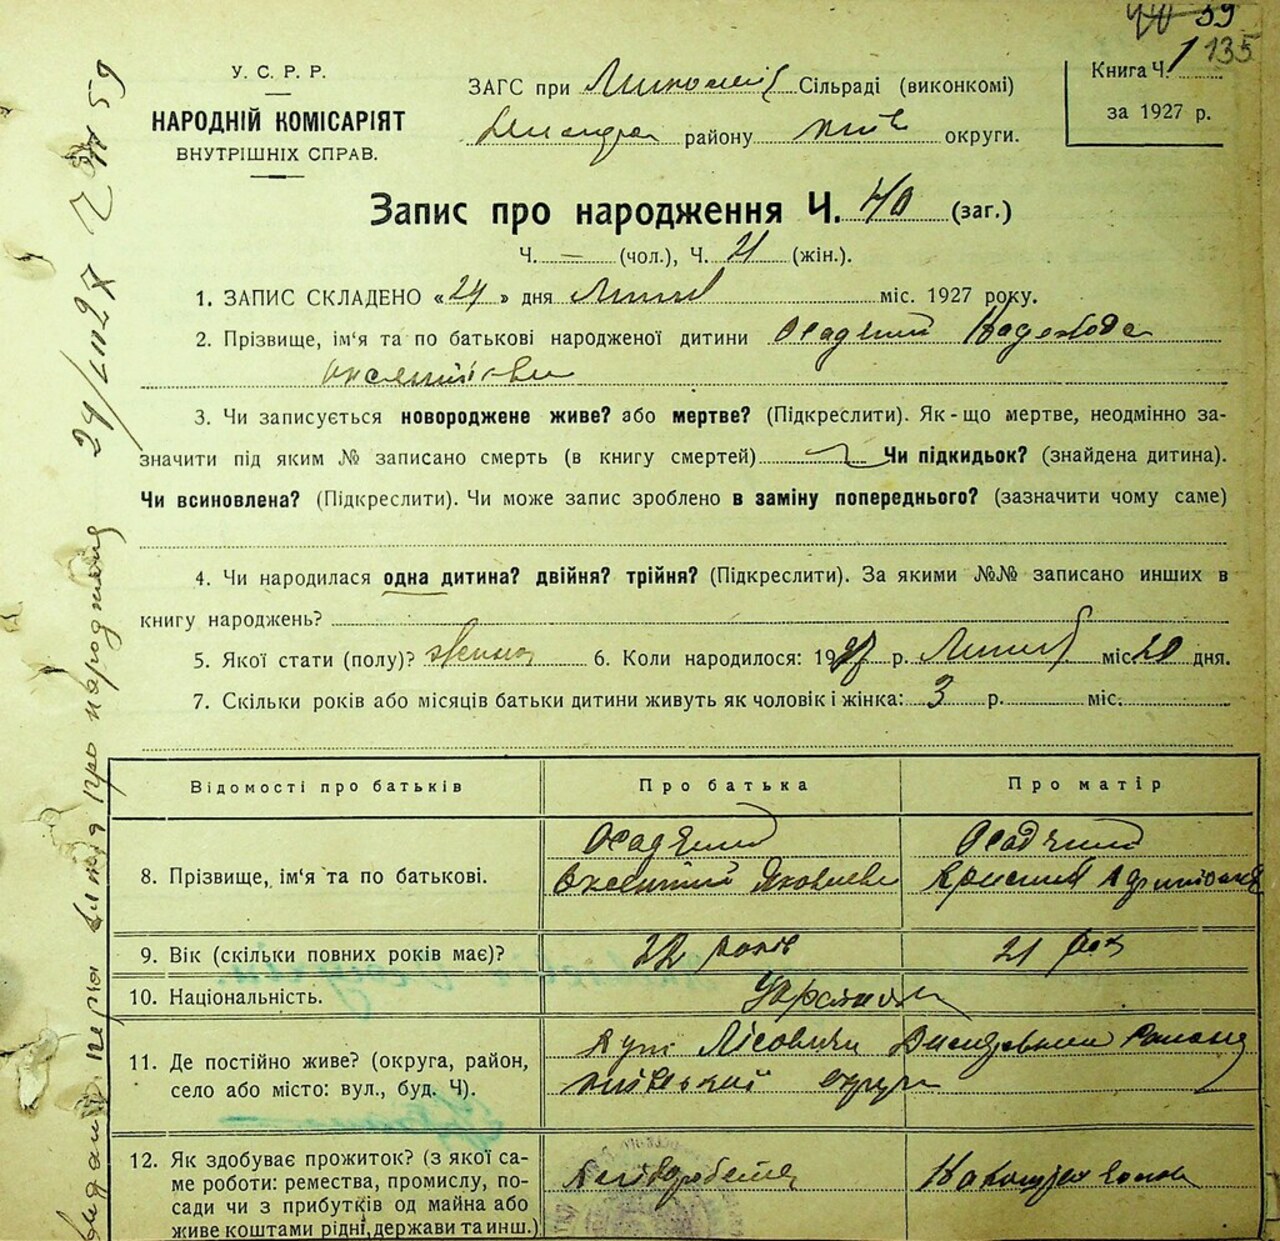 39
135
У. С. Р. Р.
НАРОДНІЙ КОМІСАРІЯТ
ВНУТРІШНІХ СПРАВ.
ЗАГС при Сільраді (виконкомі)
району київ округи.
Книга Ч. 1
за 1927 р.
Запис про народження Ч. 40 (заг.)
Ч. — (чол.), Ч. 21 (жін.).
1. ЗАПИС СКЛАДЕНО «24» дня Липня міс. 1927 року.
2. Прізвище, ім'я та по батькові народженої дитини Осадчий Надежда
3. Чи записується новороджене живе? або мертве? (Підкреслити). Як-що мертве, неодмінно за-
значити під яким № записано смерть (в книгу смертей) Чи підкидьок? (знайдена дитина).
Чи всиновлена? (Підкреслити). Чи може запис зроблено в заміну попереднього? (зазначити чому саме)
4. Чи народилася одна дитина? двійня? трійня? (Підкреслити). За якими №№ записано инших в
книгу народжень?
5. Якої стати (полу)? жіноча 6. Коли народилося: 1927 р. Липня міс. 20 дня.
7. Скільки років або місяців батьки дитини живуть як чоловік і жінка: 3 р. міс.
Відомості про батьків Про батька Про матір
8. Прізвище, ім'я та по батькові.
Осадчий Осадчий
Яковлев
9. Вік (скільки повних років має)? 22 років 21 рок
10. Національність.
11. Де постійно живе? (округа, район,
село або місто: вул., буд. Ч).
Лісовичи
київський округи
12. Як здобуває прожиток? (з якої са-
ме роботи: ремества, промислу, по-
сади чи з прибутків од майна або
живе коштами рідні, держави та инш.)
про народження
24/VII 27